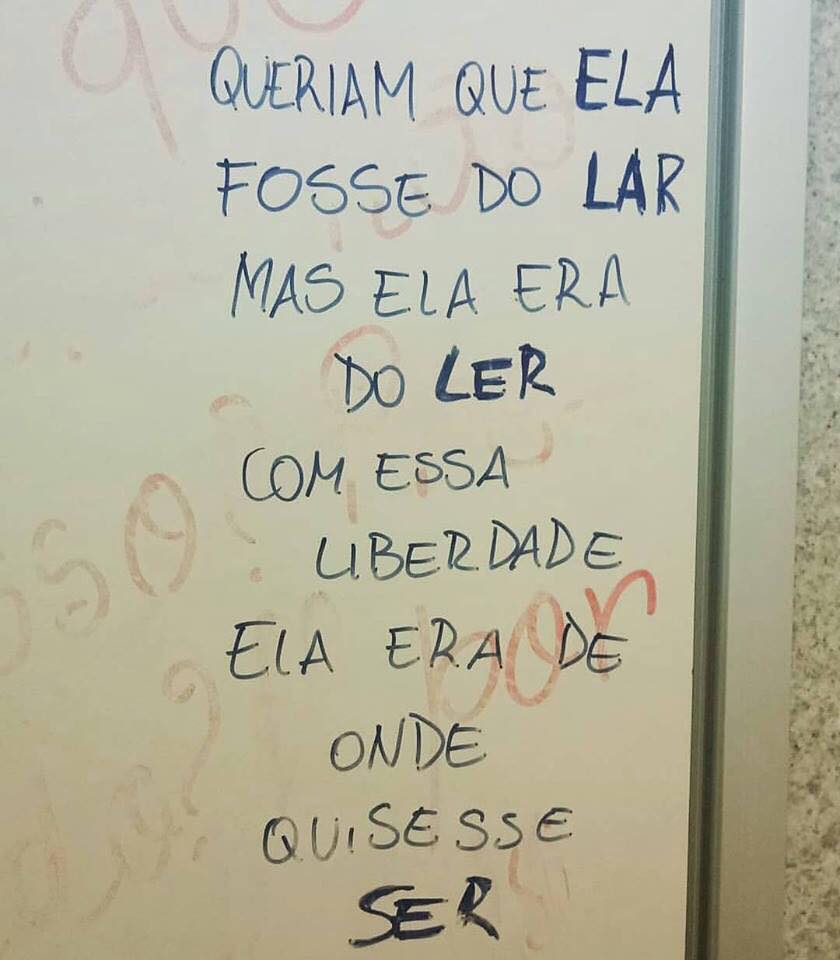 QUERIAM QUE ELA
FOSSE DO LAR
MAS ELA ERA
DO LER
COM ESSA
LIBERDADE
ELA ERA DE
ONDE
QUISESSE
SER
por